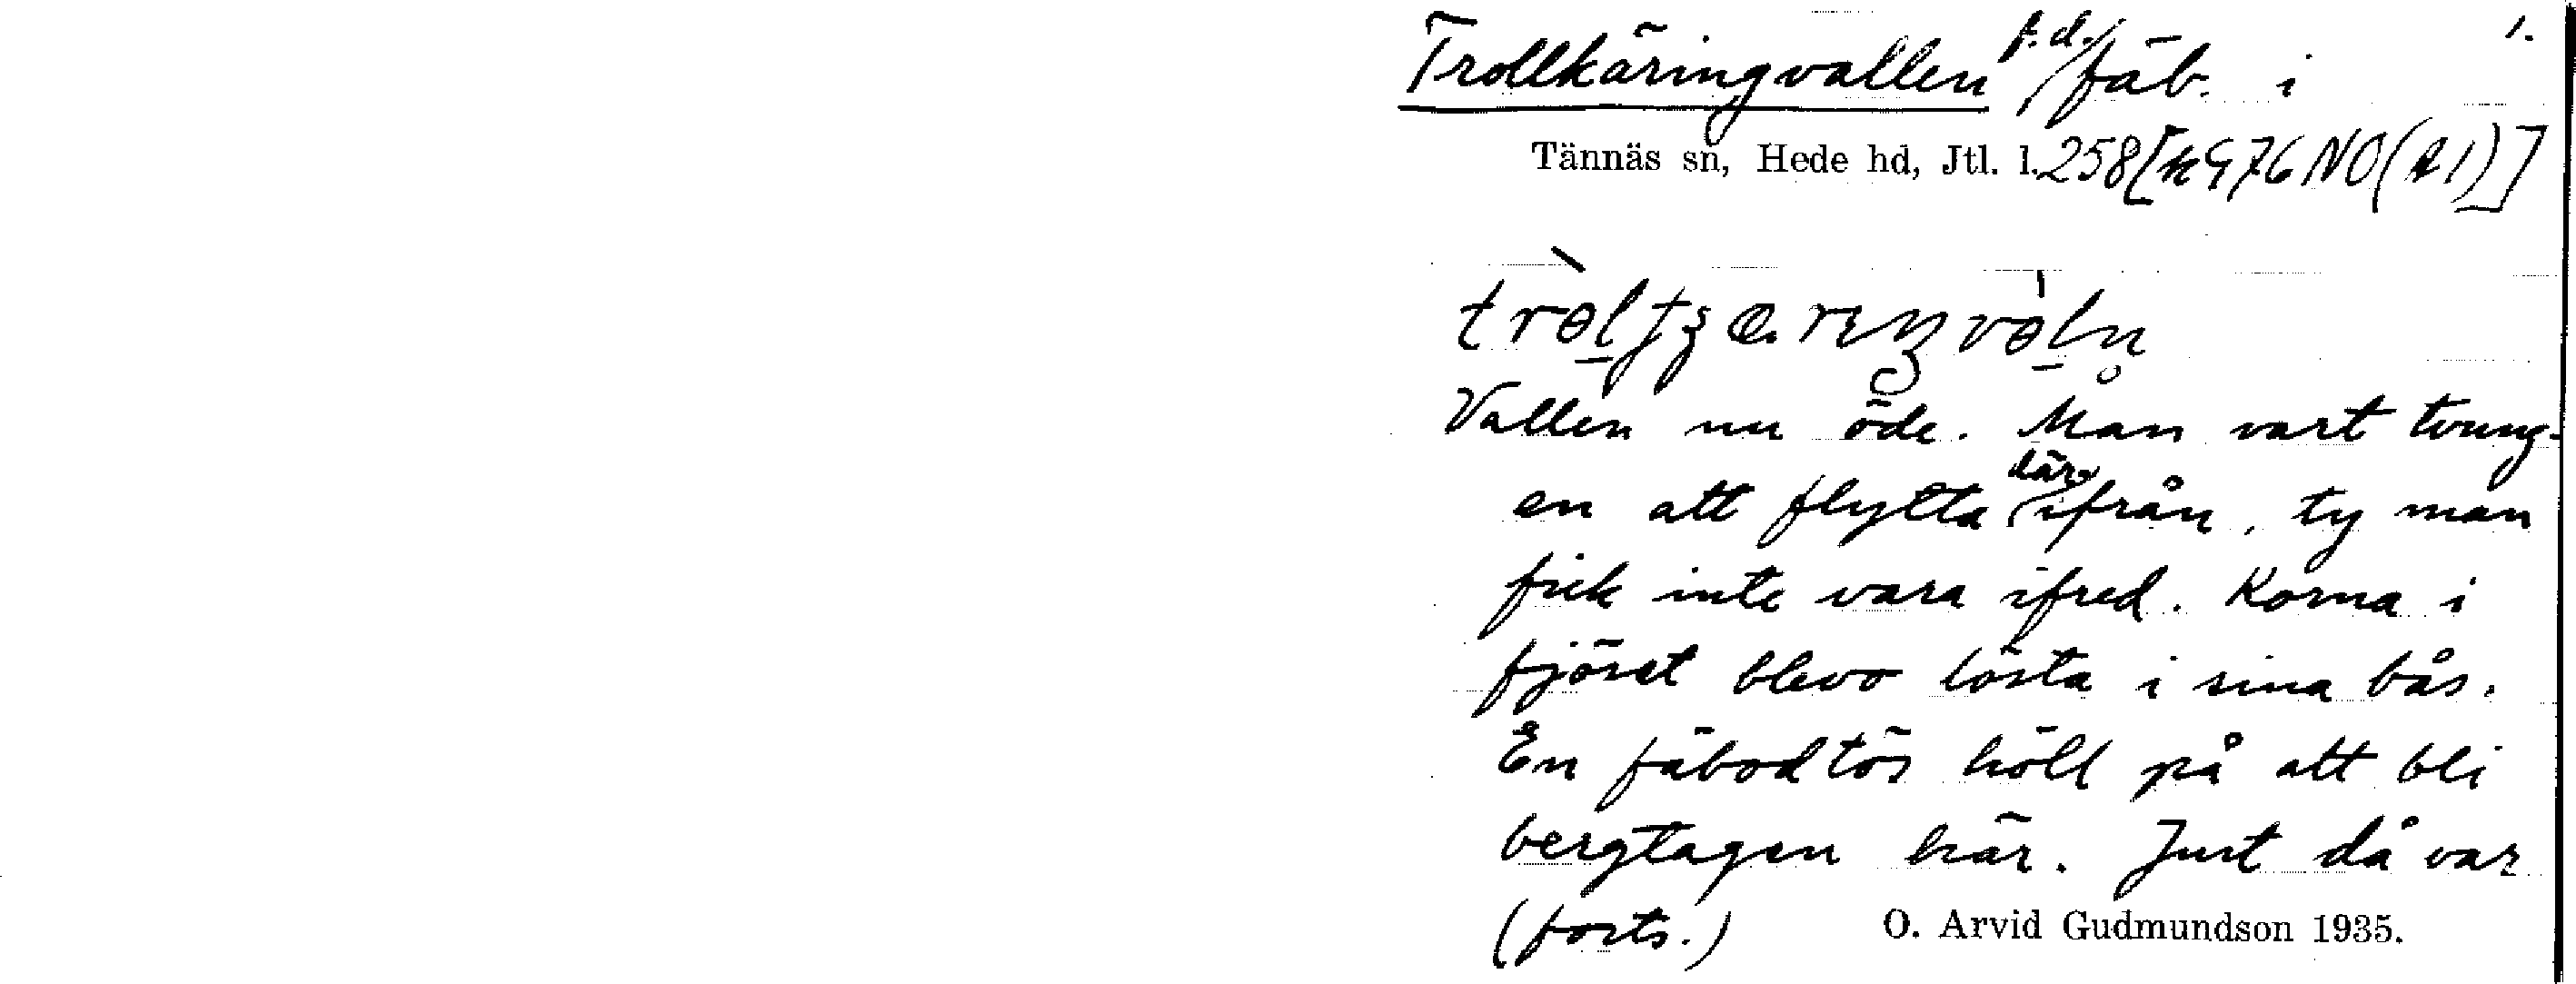 1.
Trollkäringvallen f.d. fäb. i
Tännäs sn, Hede hd, Jtl. l. 258 [k 976 NO (A1)]
Vallen nu öde. Man vart tvung-
en att flytta därifrån, ty man
fick inte vara ifred. Korna i
fjöset blevo lösta i sina bås.
En fäbodtös höll på att bli
bergtagen här. Just då var
(forts.) O. Arvid Gudmundson 1935.